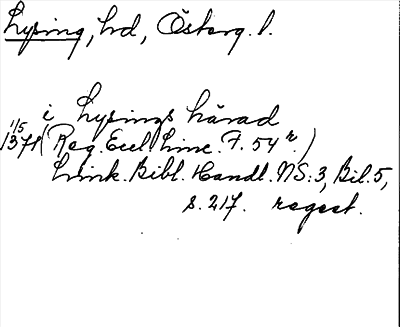 Lysing, hd, Österg. l.
i Lysings härad
1/5 1371 (Reg. Eccl. Linc. F. 54 r.)
Link. Bibl. Handl. NS: 3, Bil. 5,
s. 217. regest.